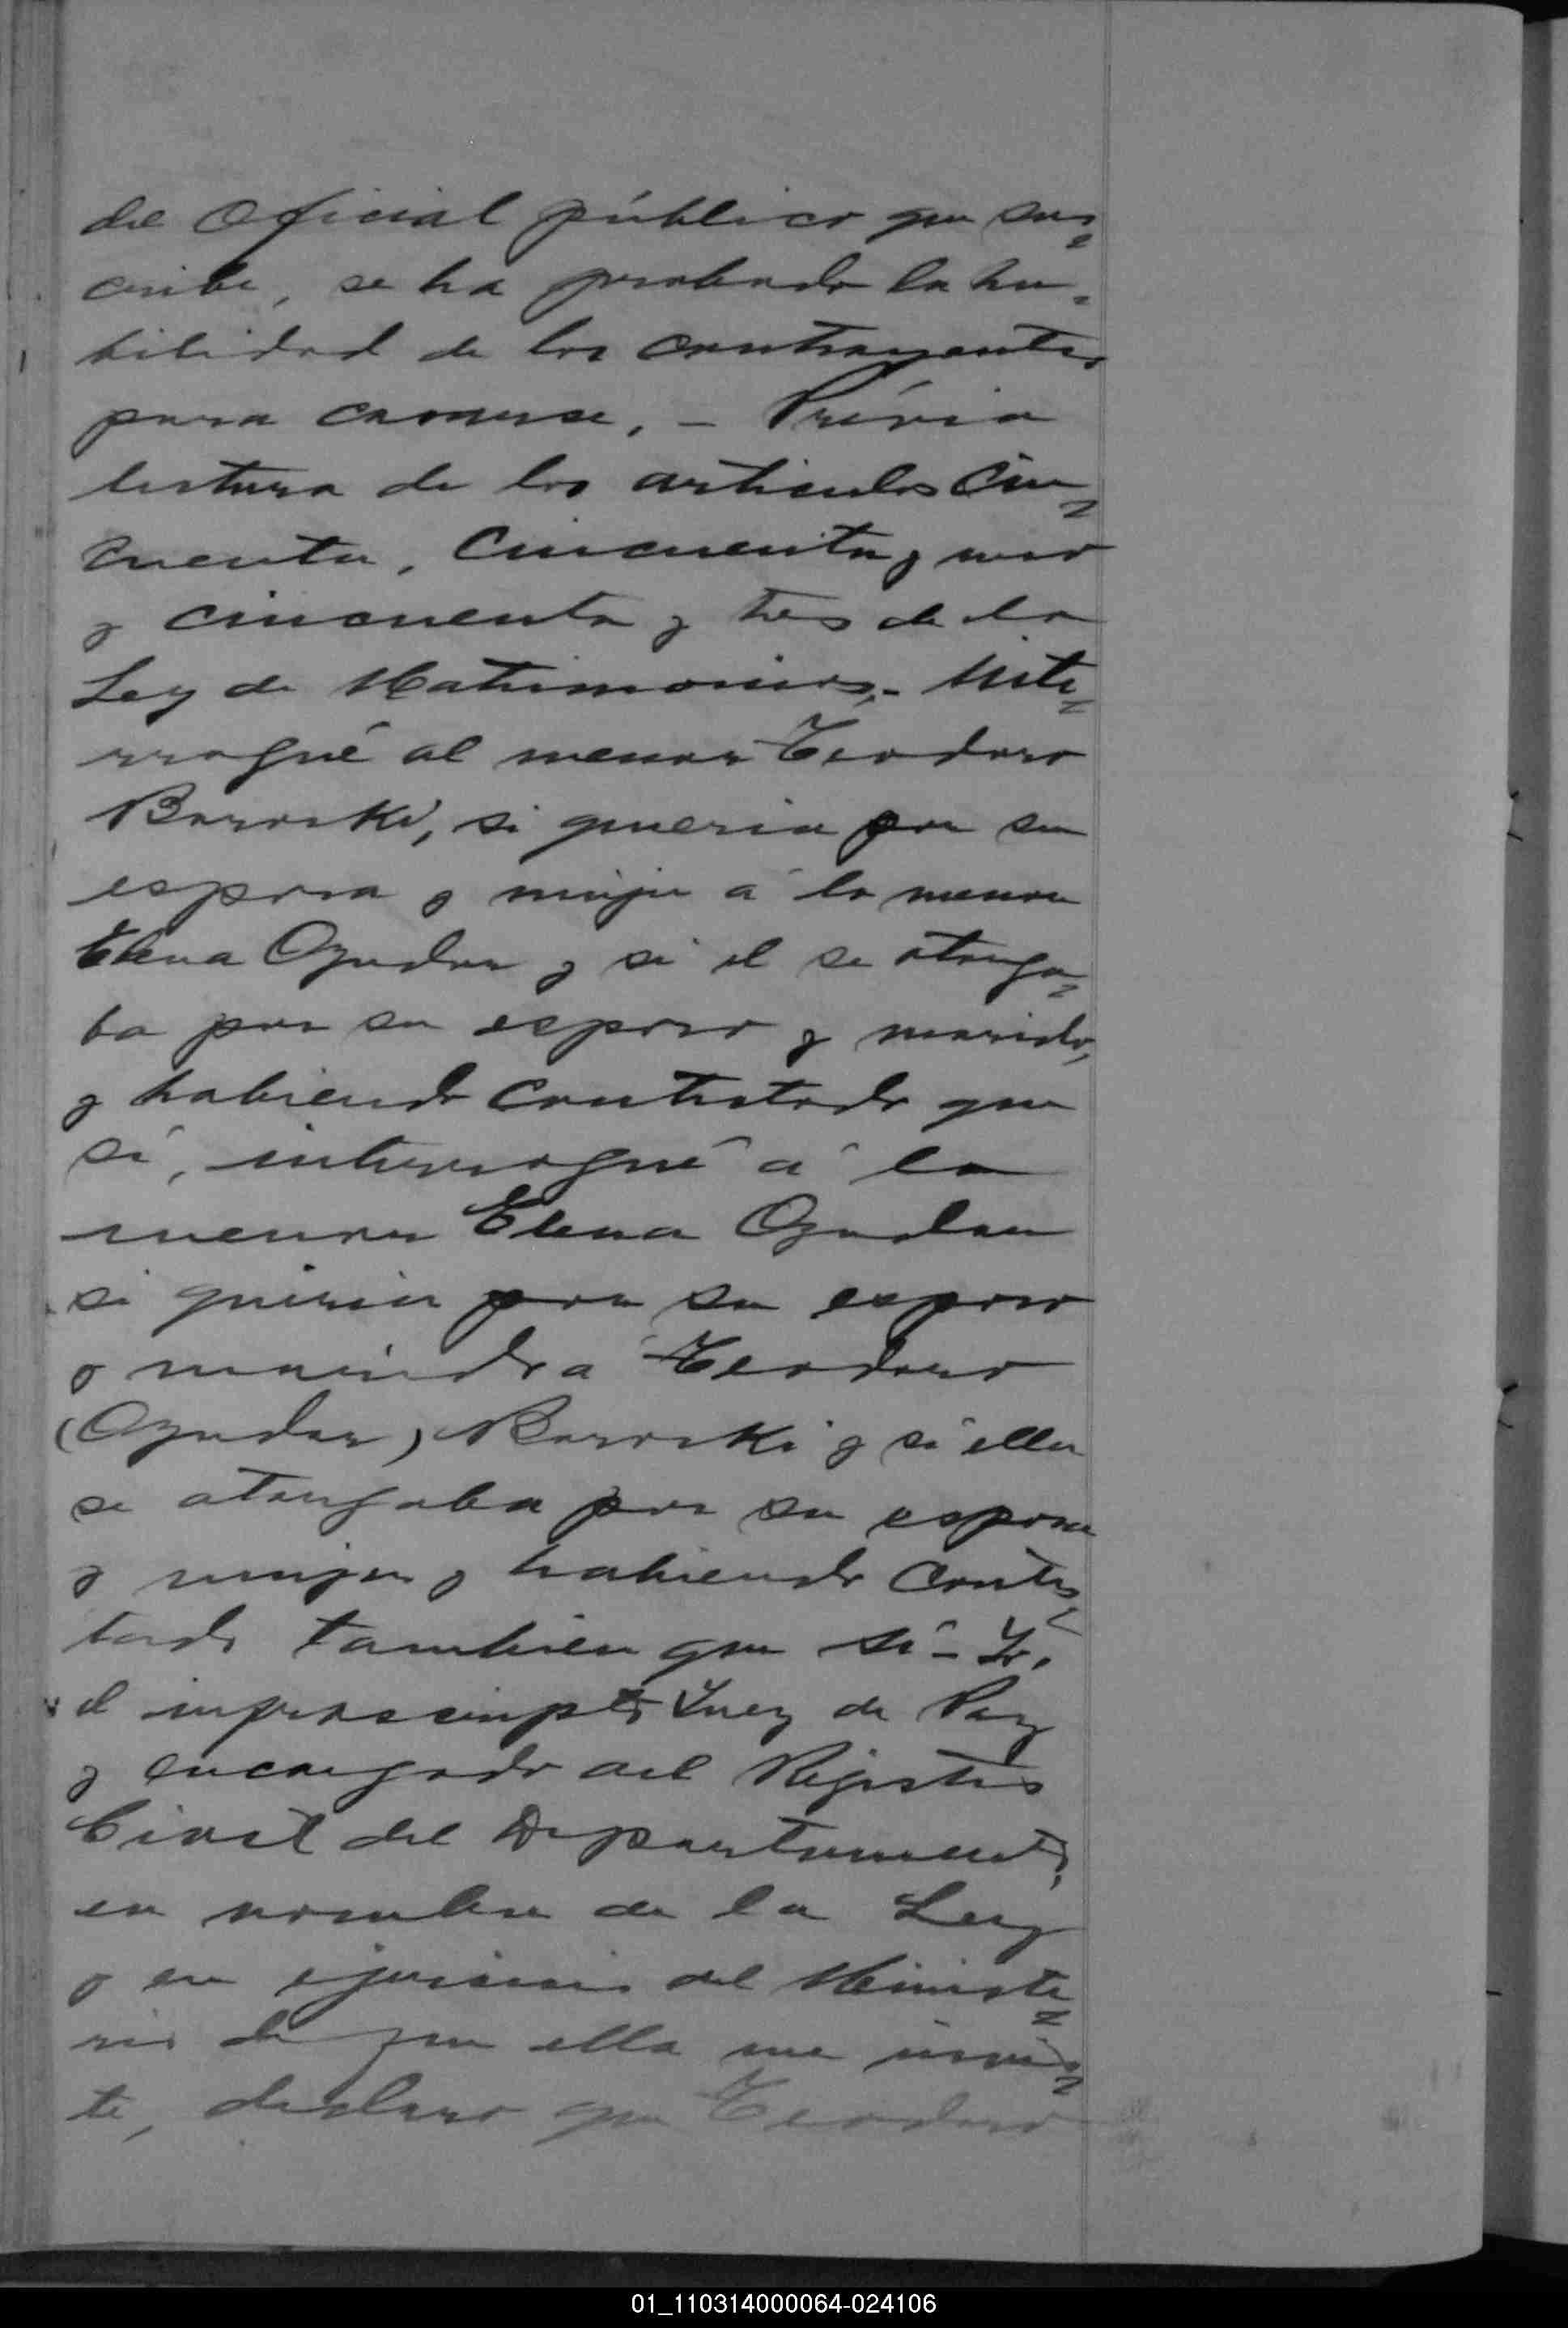 del Oficial público que sus=
cribe, se ha probado la ha=
bilidad de los contrayentes
para casarse. - Prévia
lectura de los articulos Cin=
cuenta, Cincuenta y uno
y cincuenta y tres de la
Ley de Matrimonios,- Inte=
rrogué al menor Teodoro
Bororski, si queria por su
esposa y mujer á la menor
Elena Ozudar y si el se otorga=
ba por su esposo y marido,
y habiendo contestado que
sí, interrogué á la
menor Elena Ozudar
si queria por su esposo
y marido á Teodoro
(Ozudar) Bororski y si ella
se otorgaba por su esposa
y mujer y habiendo contes=
tado tambien que sí - Yo,
el infrascripto Juez de Paz
y encargado del Registro
Civil del Departamento,
en nombre de la Ley
y en ejercicio del Ministe=
rio de que ella me invis=
te, declaro que Teodoro
01_110314000064-024106